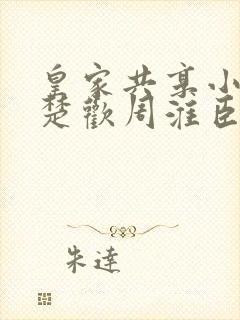 皇家共享小
楚歡周淮臣
朱達